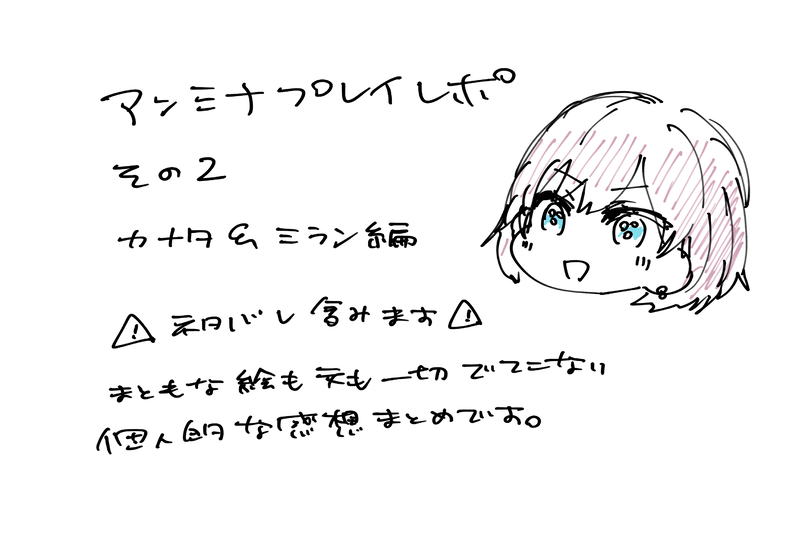 アンミナプレイレポ
その2
カナタ&ミラン編
⚠ネタバレ含みます⚠
まともな絵も文も一切でてこない
個人的な感想まとめです。